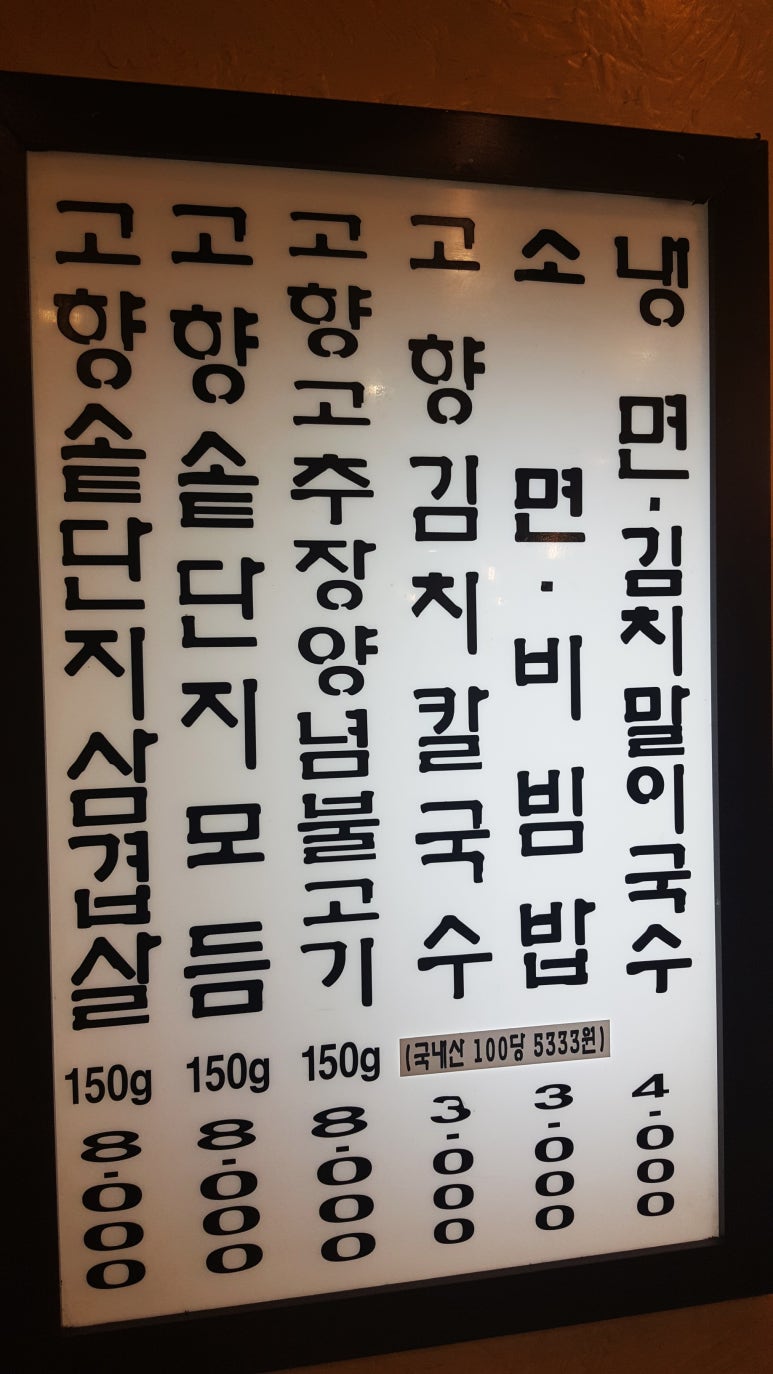 고향솥단지삼겹살 150g 8.000
고향솥단지모듬 150g 8.000
고향고추장양념불고기 150g 8.000
고향김치칼국수 3.000
소면·비빔밥 3.000
냉면·김치말이국수 4.000
(국내산 100당 5333원)